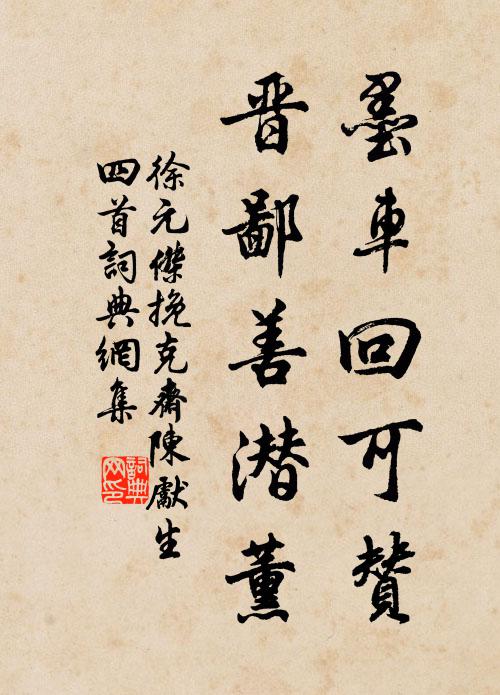 墨車回可贊
晋鄙善潜薰
徐元傑挽克齋陳獻生
四首詞典網集
詞典网印